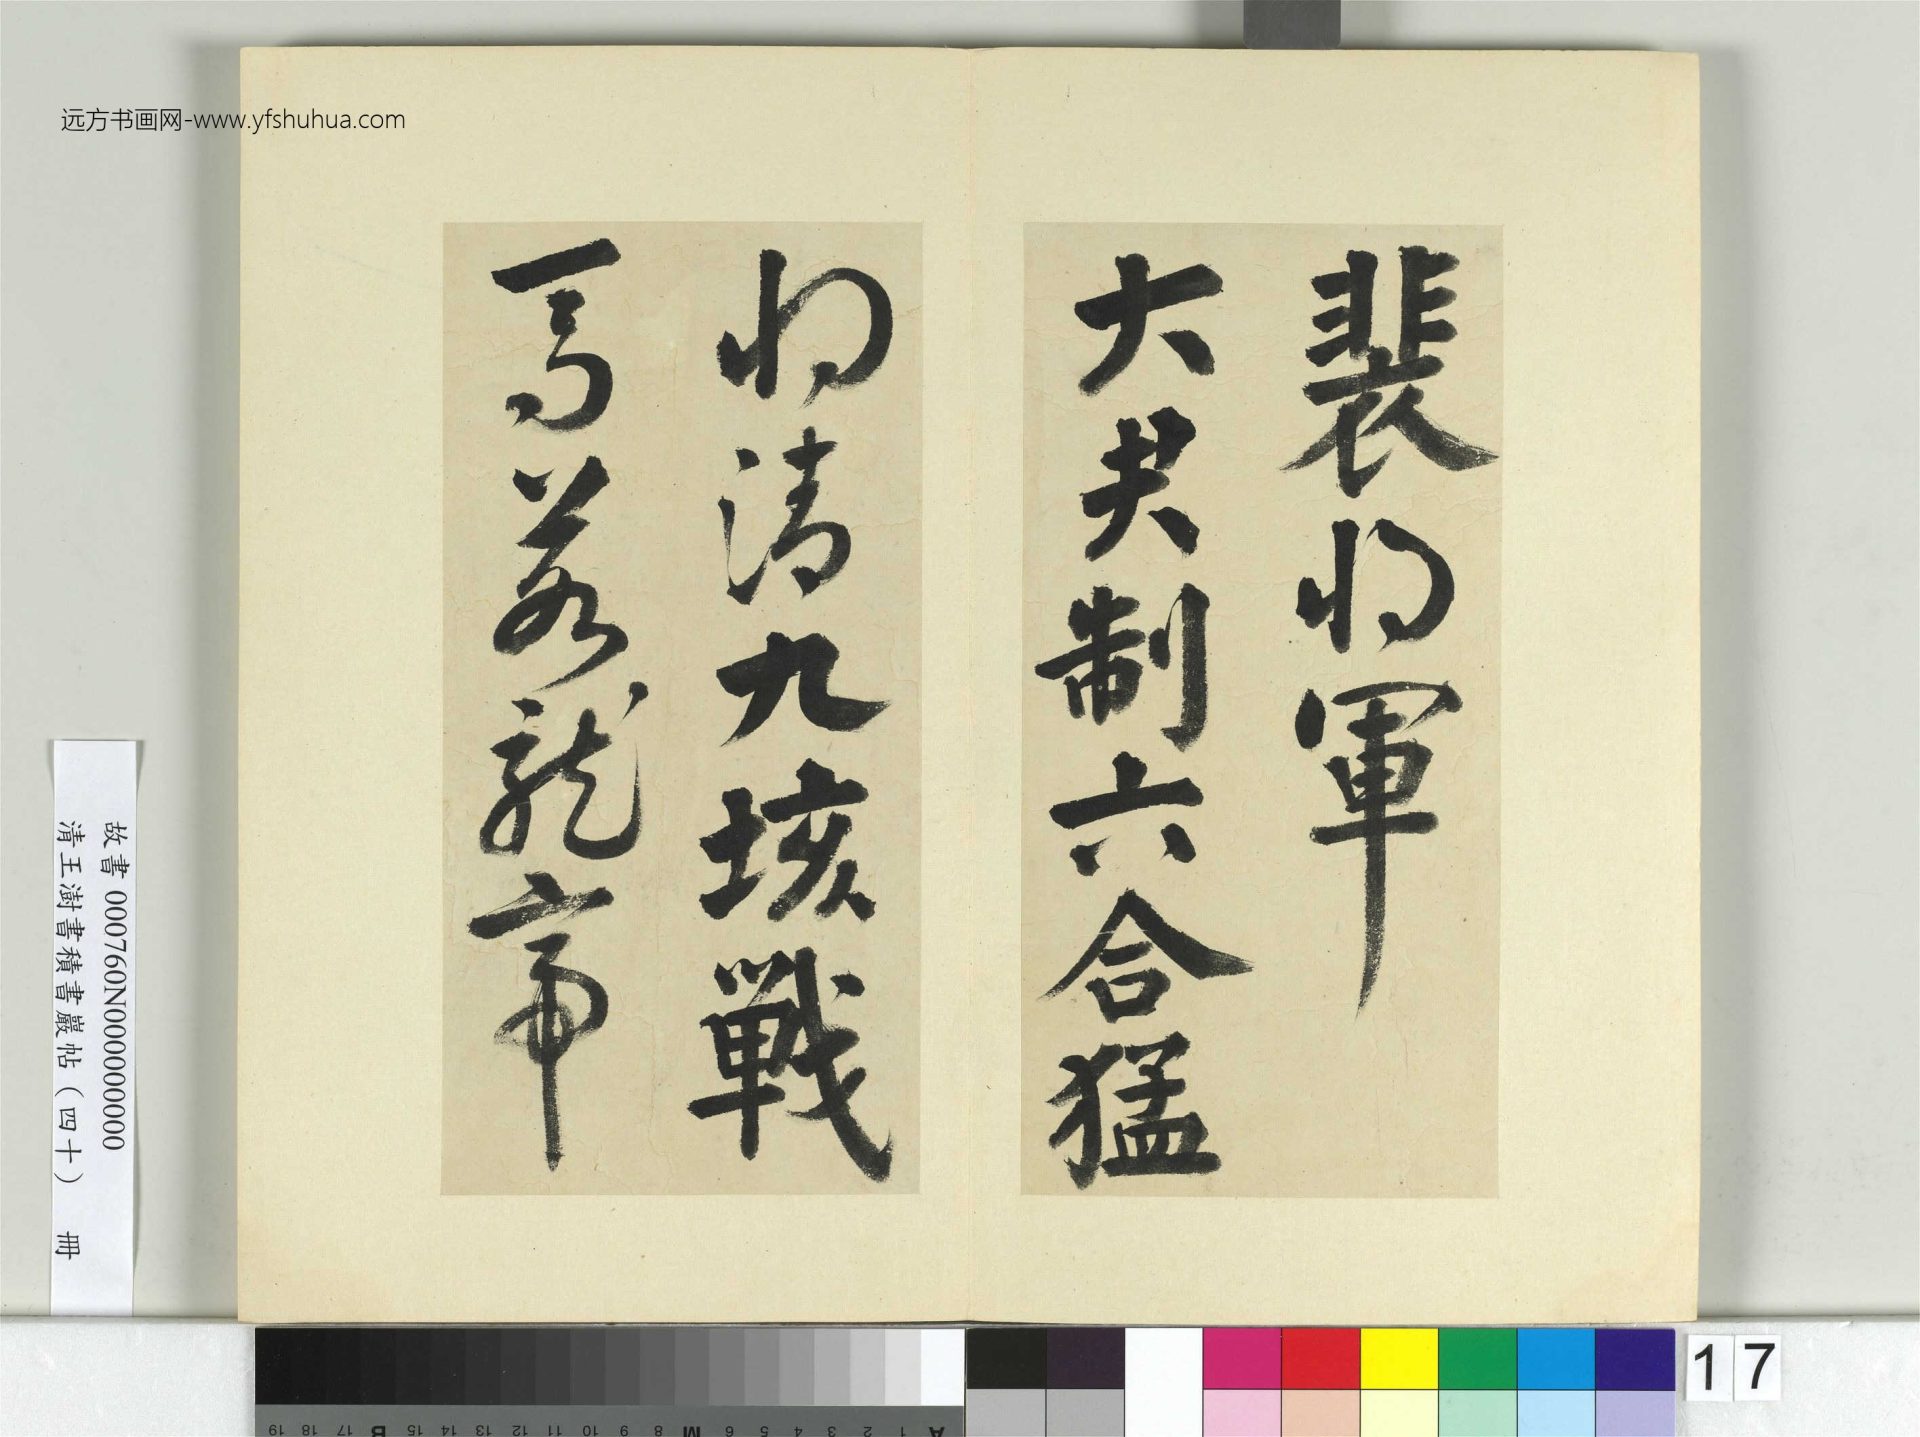 远方书画网-www.yfshuhua.com
裴將軍
大君制六合猛
將清九垓戰
馬若龍虎
故書 000760N000000000
清王澍書積書巖帖（四十） 冊
17
19 18 17 B 15 14 13 12 11 10 9 8 M 6 5 4 3 2 1 A